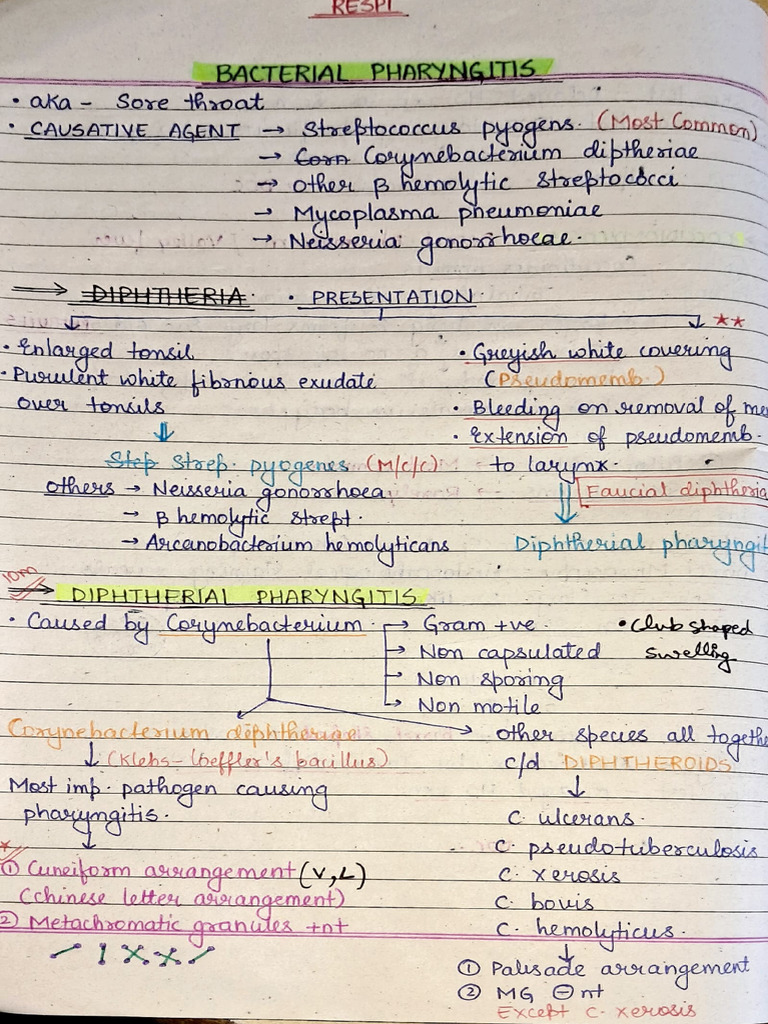 RESPI
BACTERIAL PHARYNGITIS
• aka - Sore throat
• CAUSATIVE AGENT → Streptococcus pyogens. (Most Common)
→ Corn Corynebacterium diptheriae
→ other β hemolytic streptococci
→ Mycoplasma pneumoniae
→ Neisseria gonorrhoeae.
→ DIPHTHERIA. • PRESENTATION.
• Enlarged tonsil
• Purulent white fibrinous exudate
over tonsils
Step Strep. pyogenes (M/c/c)
others → Neisseria gonorrhoea
→ β hemolytic strept.
→ Arcanobacterium hemolyticans
**
• Greyish white covering
(Pseudomemb.)
• Bleeding on removal of me
• Extension of pseudomemb.
to larynx.
Faucial diphtheria
Diphtherial pharyngit
10m
→ DIPHTHERIAL PHARYNGITIS
• Caused by Corynebacterium. → Gram +ve. • Club shaped
→ Non capsulated swelling
→ Non sporing
→ Non motile
Corynebacterium diphtheriae
(Klebs-Loeffler's bacillus)
Most imp. pathogen causing
pharyngitis.
*
① Cuneiform arrangement (V,L)
(chinese letter arrangement)
② Metachromatic granules +nt
other species all togethe
c/d DIPHTHEROIDS
C. ulcerans.
C. pseudotuberculosis
C. xerosis
C. bovis
C. hemolyticus.
① Palisade arrangement
② MG ⊖nt
Except C. xerosis